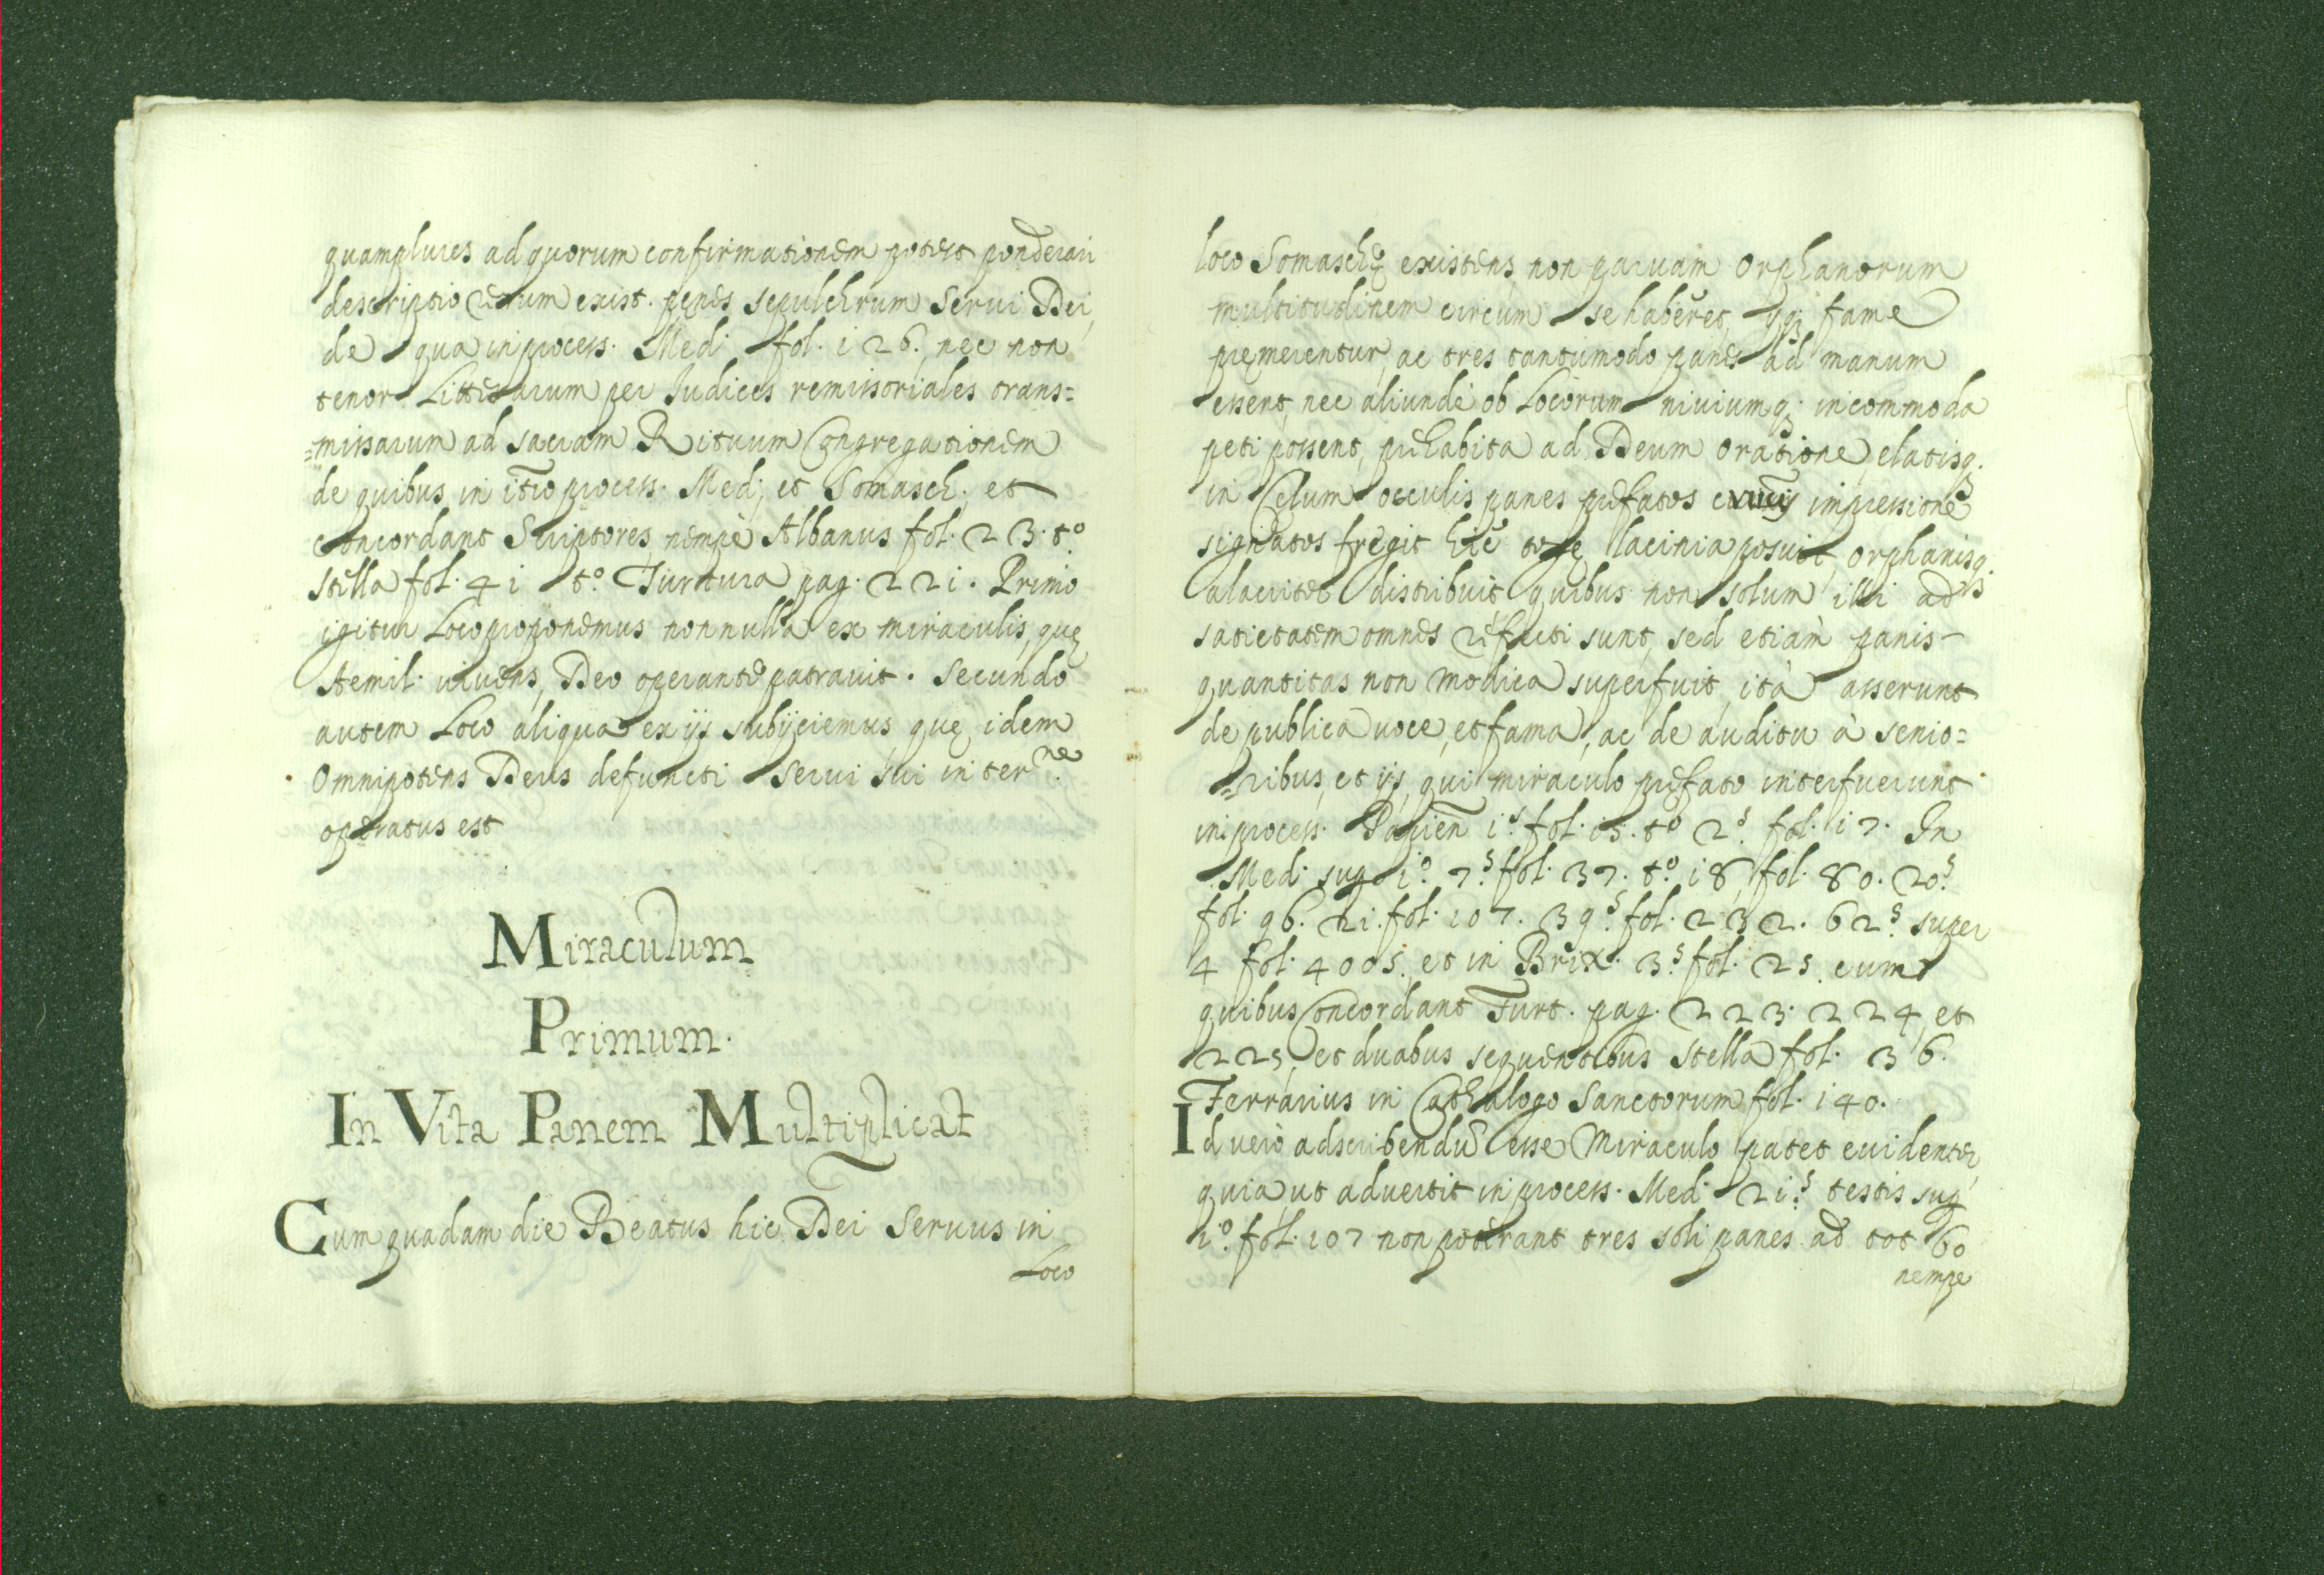 quamplures ad quorum confirmationem poterit ponderari
descriptio rerum exist. penes sepulchrum Servi Dei,
de qua in process. Med. fol. 126. nec non
tenor Litterarum per Iudices remissoriales trans=
=missarum ad sacram Rituum Congregationem
de quibus in itio process. Med. et Somasch. et
concordant Scriptores, nempè Albanus fol. 23. to.
Stella fol. 41 to. Turtura pag. 221. Primo
igitur Loco proponemus nonnulla ex miraculis, quę
Aemil. vivens, Deo operante patravit. Secundo
autem Loco aliqua ex ijs subijciemus, quę idem
Omnipotens Deus defuncti servi sui inter.ne
operatus est
Miraculum
Primum.
In Vita Panem Multiplicat
Cum quadam die Beatus hic Dei Servus in
Loco
loco Somaschę existens non parvam Orphanorum
multitudinem circum se haberet, qui fame
premerentur, ac tres tantumodo panes ad manum
essent, nec aliundè ob Locorum niviumq; incommoda
peti possent, prehabita ad Deum oratione, elatisq.
in Celum occulis panes prefatos crucis impressione
signatos fregit hic togę lacinia posuit, orphanisq.
alacriter distribuit quibus non solum illi ad
satietatem omnes refecti sunt, sed etiam panis
quantitas non modica superfuit, ità asserunt
de publica voce, et fama, ac de auditu à senio=
=ribus, et ijs, qui miraculo prefato interfuerunt
in process. Papien 1.s fol. 15. to 2.s fol. 17. In
Med. sup. 1.o 7.s fol. 37. to. 18 fol. 80. 20.s
fol. 96. 21. fol. 107. 39.s fol. 232. 62.s super
4 fol. 4005. et in Brix. 3.s fol. 25. cum
quibus Concordant Turt. pag. 223. 224, et
225, et duabus sequentibus Stella fol. 36.
Ferrarius in Cathalogo Sanctorum fol. 140.
Id verò adscribendũ esse Miraculo patet evidenter,
quia ut advertit in process. Med. 21.s testis sup.
1.o fol. 107 non poterant tres soli panes ad tot 60
nempe